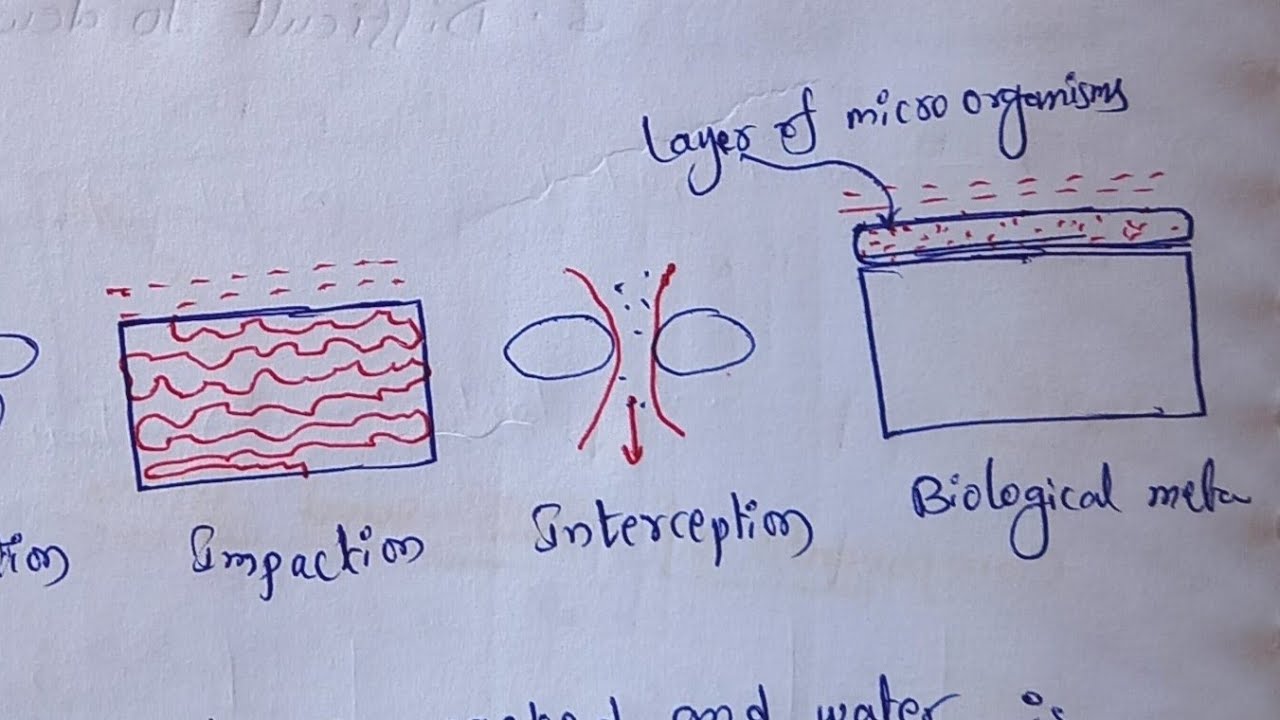 Layer of micro organisms
Impaction
Interception
Biological meta
and water is